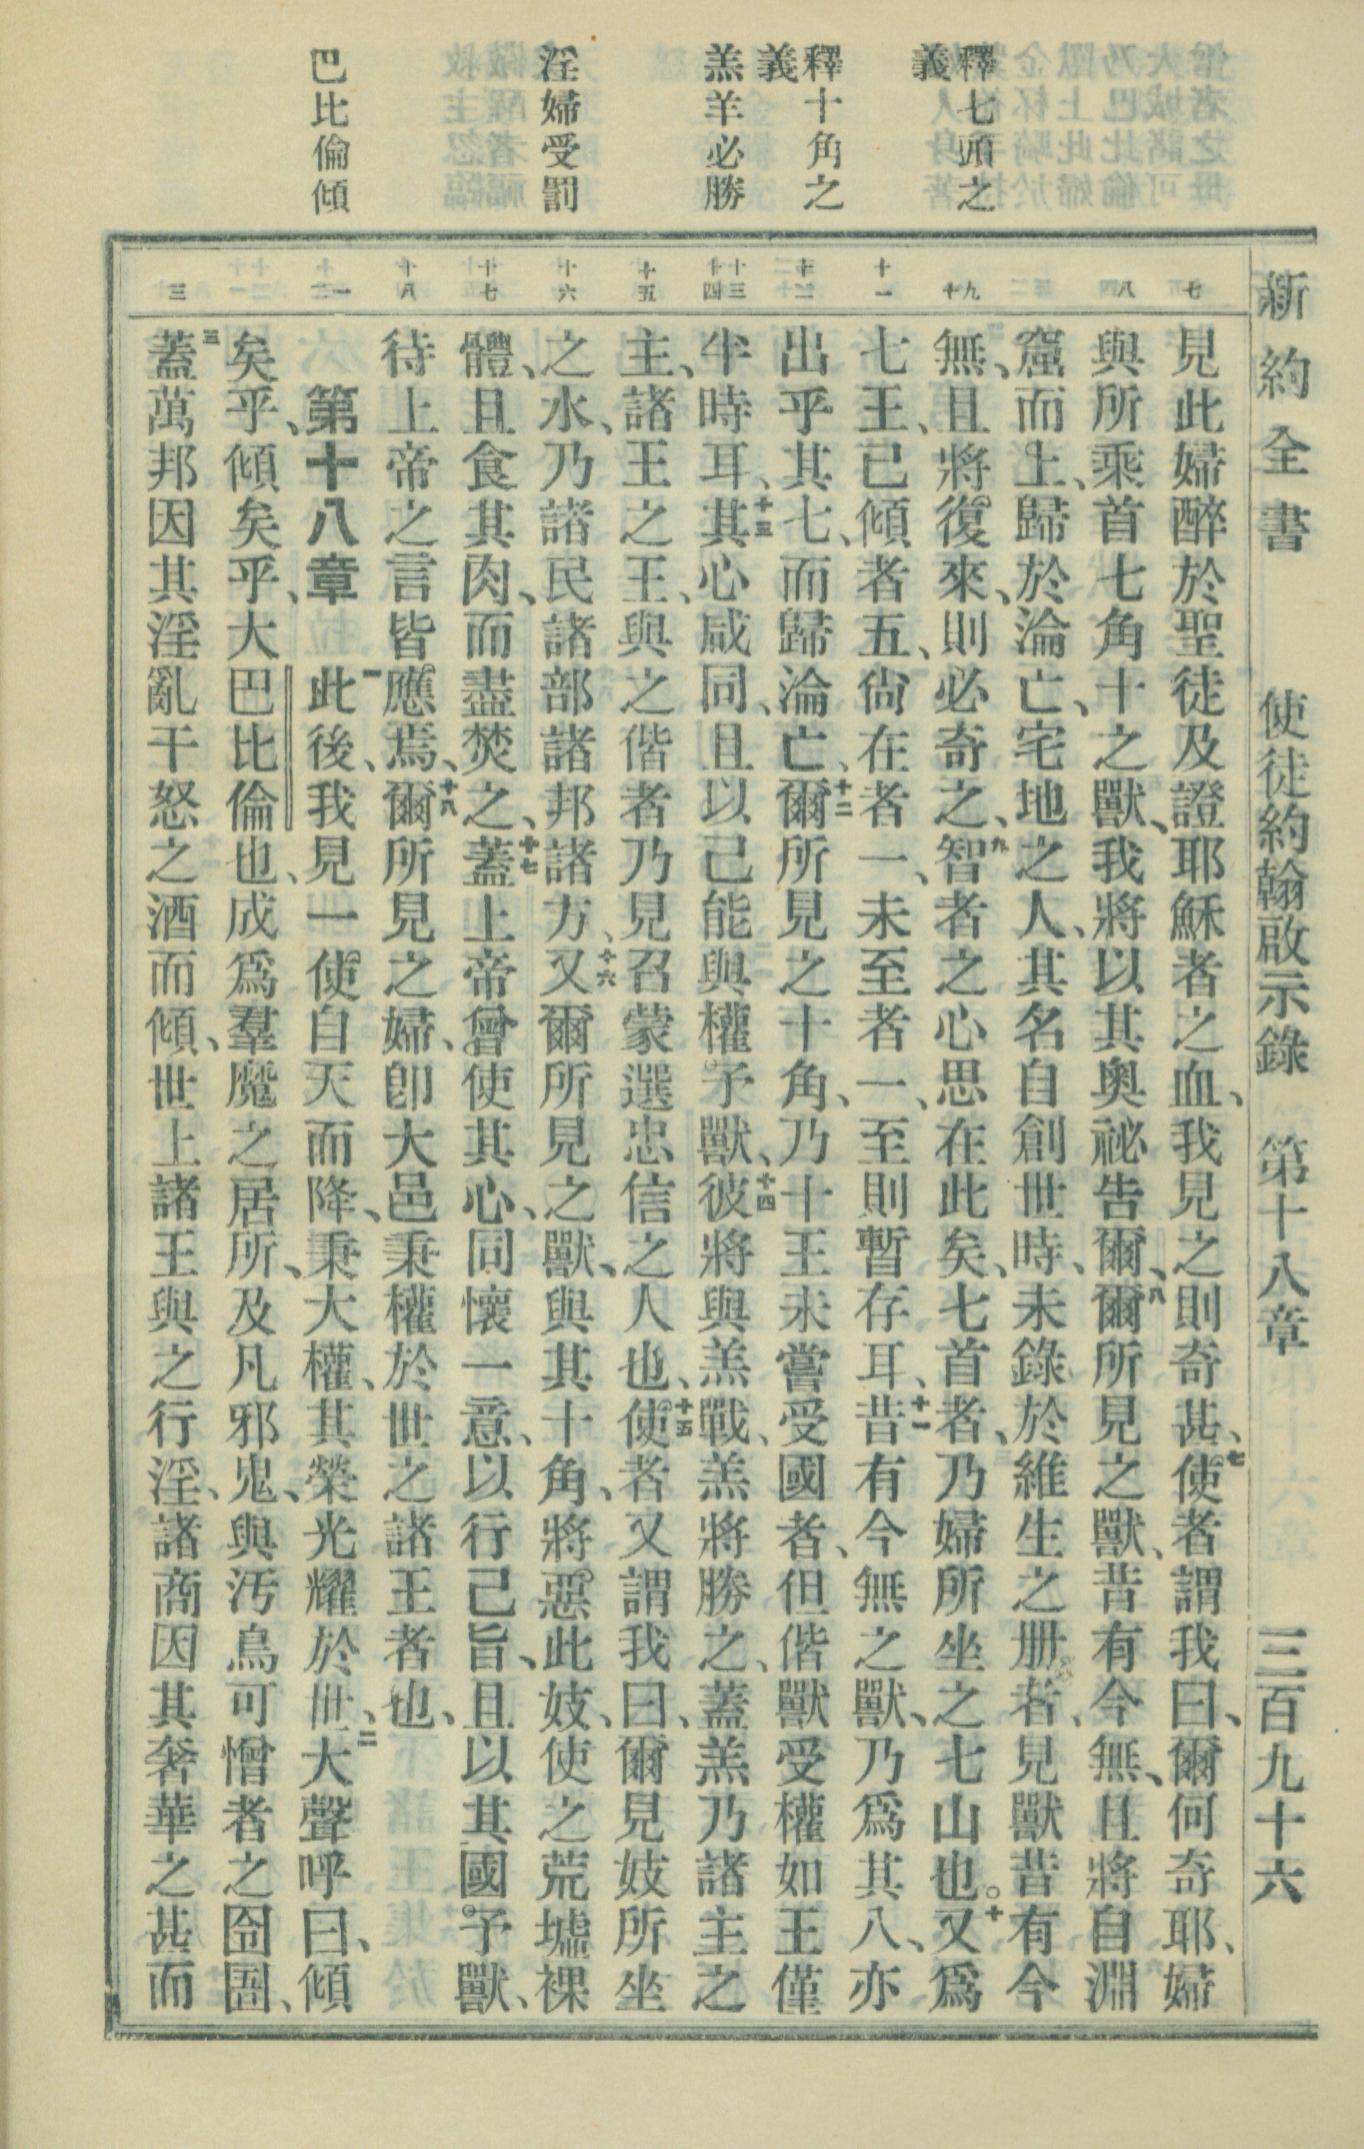 新約全書　使徒約翰啟示錄　第十八章　三百九十六
釋七頭之
義
釋十角之
義
羔羊必勝
淫婦受罰
巴比倫傾
七
八
九
十
十一
十二
十三
十四
十五
十六
十七
十八
一
二
三
見此婦醉於聖徒及證耶穌者之血、我見之則奇甚、七使者謂我曰、爾何奇耶、婦
與所乘首七角十之獸、我將以其奧祕告爾、八爾所見之獸、昔有今無、且將自淵
窟而上、歸於淪亡、宅地之人、其名自創世時、未錄於維生之册者、見獸昔有今
無、且將復來、則必奇之、九智者之心思在此矣、七首者、乃婦所坐之七山也。十又爲
七王、已傾者五、尙在者一、未至者一、至則暫存耳、十一昔有今無之獸、乃爲其八、亦
出乎其七、而歸淪亡、十二爾所見之十角、乃十王未嘗受國者、但偕獸受權如王僅
半時耳、十三其心咸同、且以己能與權予獸、十四彼將與羔戰、羔將勝之、蓋羔乃諸主之
主、諸王之王、與之偕者乃見召蒙選忠信之人也、十五使者又謂我曰、爾見妓所坐
之水、乃諸民諸部諸邦諸方、十六又爾所見之獸、與其十角、將惡此妓、使之荒墟裸
體、且食其肉、而盡焚之、十七蓋上帝曾使其心、同懷一意、以行己旨、且以其國予獸、
待上帝之言皆應焉、十八爾所見之婦、卽大邑秉權於世之諸王者也、
第十八章　一此後、我見一使自天而降、秉大權、其榮光耀於世、二大聲呼曰、傾
矣乎、傾矣乎、大巴比倫也、成爲羣魔之居所、及凡邪鬼、與汚鳥可憎者之囹圄、
三蓋萬邦因其淫亂干怒之酒而傾、世上諸王與之行淫、諸商因其奢華之甚而